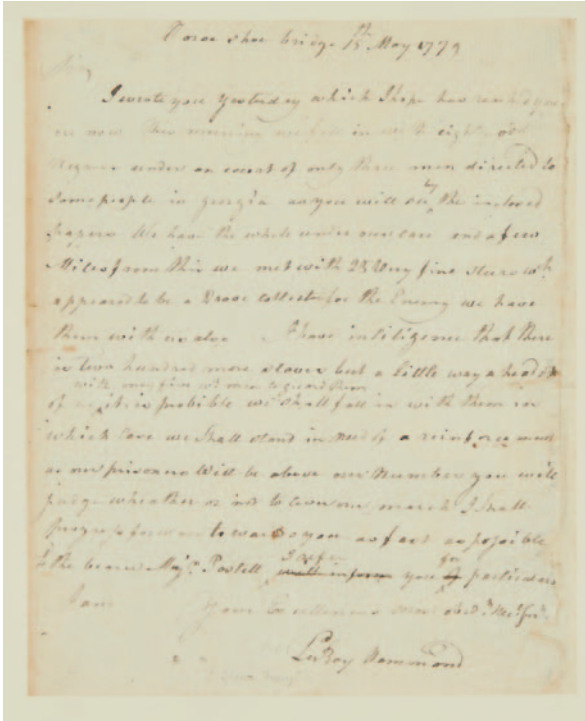 Horse shoe bridge 15th May 1779
Sir
I wrote you yesterday which I hope has reached you
ere now this morning we fell in with eight odd
Negroes under an escort of only three men directed to
some people in georgia as you will see by the inclosed
papers We have the whole under our care and a few
Miles from this we met with 28 Very fine steers wh.
appeared to be a Drove collected for the Enemy we have
them with us also I have intiligence that there
is two hundred more slaves but a little way a head
with only five wd. men to guard them
of us it is probible we shall fall in with them in
which case we shall stand in need of a reinforcement
as our prisoners will be above our Number you will
judge wheather or not to our march I shall
forward towards you as fast as possible
to the bearer Majr. Postell I refer you for particulars
I am Your Excellencys most obedt.
LeRoy Hammond